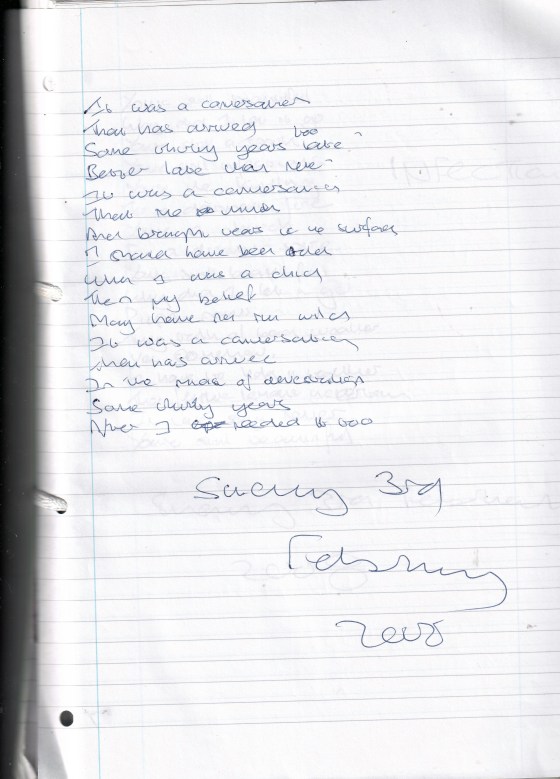 It was a conversation
That has arrived too
Some thirty years late
Better late than never
It was a conversation
That
And brought tears to the surface
I should have been older
When I was a child
Then my belief
May have not run wild
It was a conversation
That has arrived
In the midst of devastation
Some thirty years
After I needed it too
Sunday 3rd
February
2008